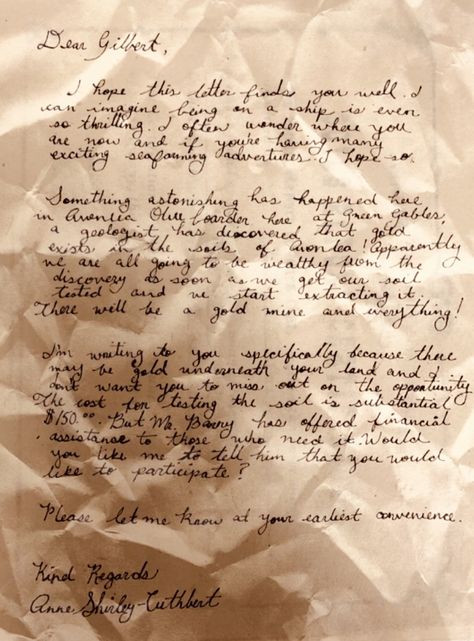 Dear Gilbert,
I hope this letter finds you well. I
can imagine being on a ship is even
so thrilling. I often wonder where you
are now and if you're having many
exciting seafaring adventures. I hope so.
Something astonishing has happened here
in Avonlea. Our boarder here at Green Gables,
a geologist, has discovered that gold
exists in the soils of Avonlea! Apparently
we are all going to be wealthy from the
discovery as soon as we get our soil
tested and we start extracting it.
There will be a gold mine and everything!
I'm writing to you specifically because there
may be gold underneath your land and I
don't want you to miss out on the opportunity
The cost for testing the soil is substantial
$150.00. But Mr. Barry has offered financial
assistance to those who need it. Would
you like me to tell him that you would
like to participate?
Please let me know at your earliest convenience.
Kind Regards
Anne Shirley-Cuthbert